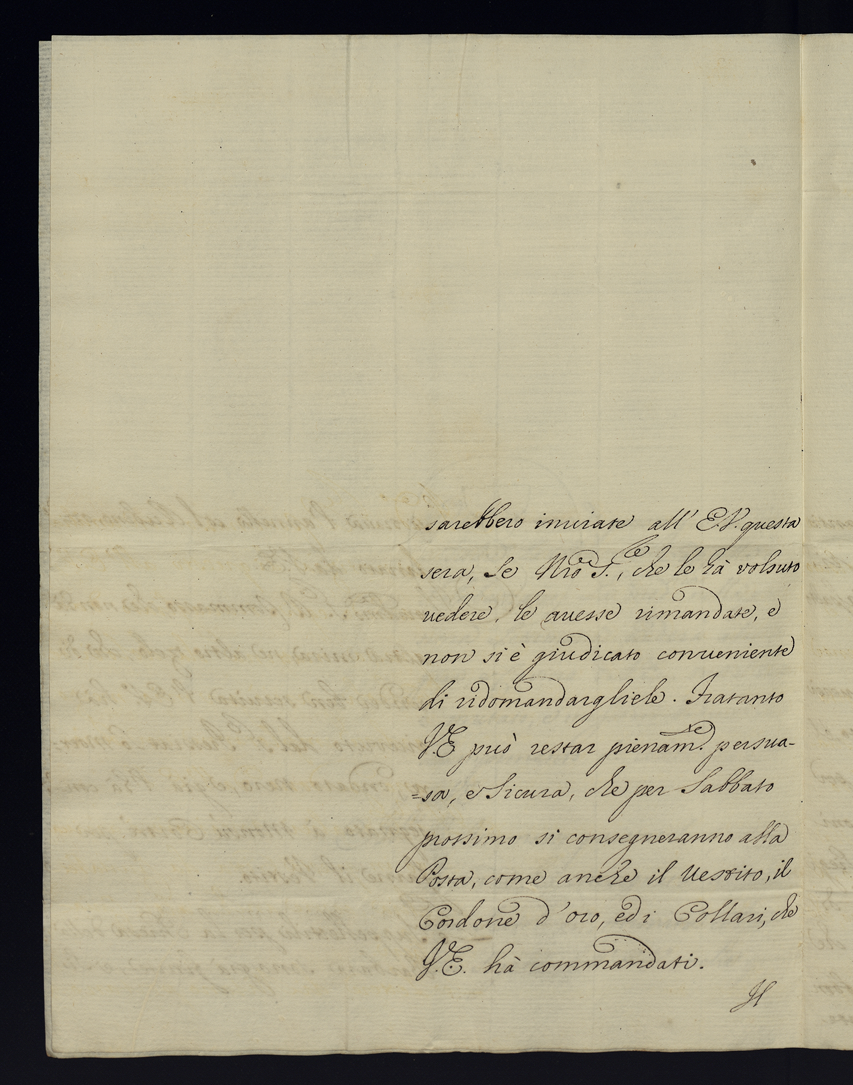 sarebbero inviate all' E.V. questa
sera, se Nro S.re, che le hà volsuto
vedere, le avesse rimandate, e
non si è giudicato conveniente
di ridomandargliele. Fratanto
V.E. può restar pienam.te persua-
=sa, e sicura, che per Sabbato
prossimo si consegneranno alla
Posta, come anche il Vestito, il
Cordone d'oro, ed i Collari, che
V.E. hà commandati.
Il